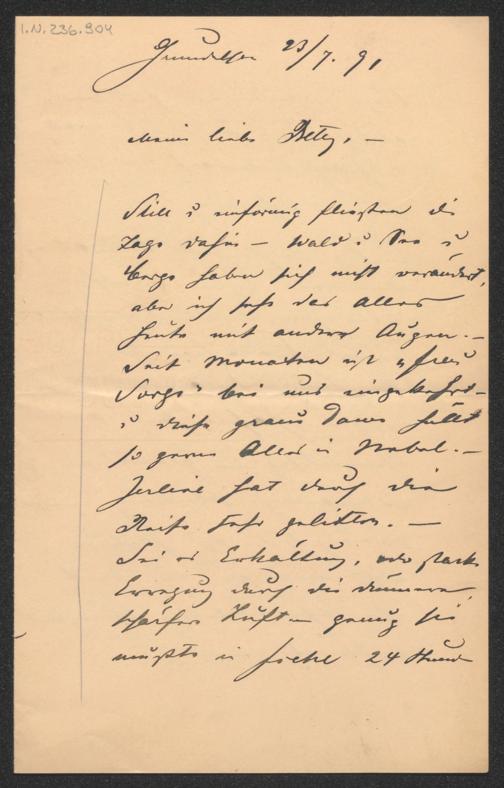 I.N. 236.904
Grundlsee 23/7. 91
Meine liebe Betty, —
Still u einförmig fliessen die
Tage dahin — Wald u See u
Berge haben sich nicht verändert,
aber ich sehe das Alles
heute mit anderen Augen. —
Seit Monaten ist „Frau
Sorge" bei uns eingekehrt —
u diese graue Dame hüllt
so gerne Alles in Nebel. —
hat durch die
Reise sehr gelitten. —
Sei es Erkältung, oder starke
Erregung durch die dünnere,
schärfere Luft — genug sie
musste in Ischl 24 Stund